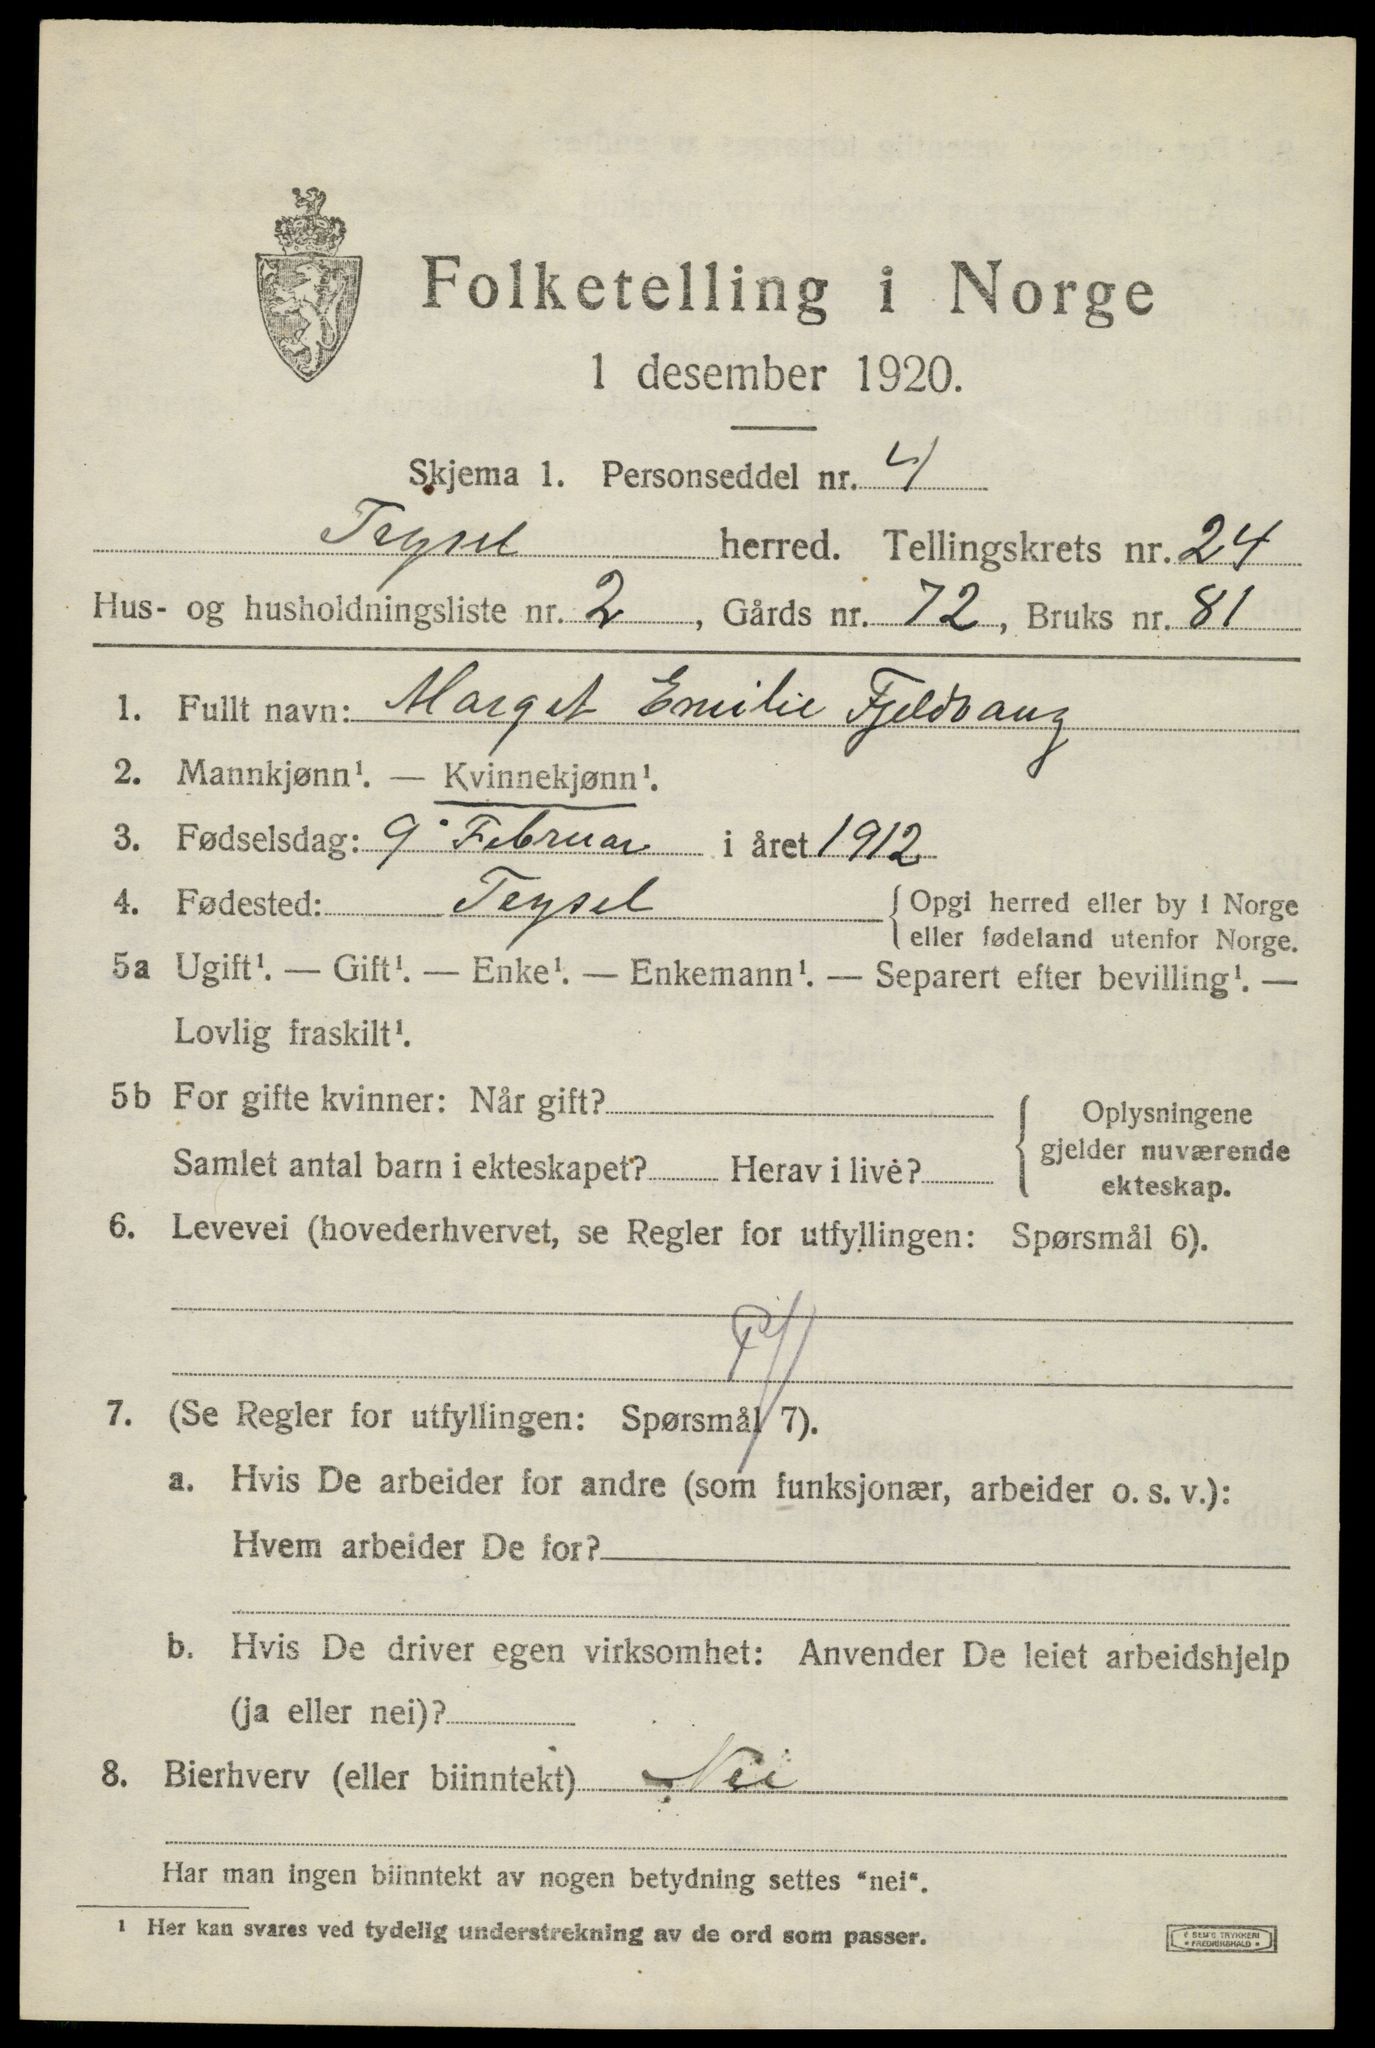 Folketelling i Norge
1 desember 1920.
Skjema 1. Personseddel nr. 4
Trysil herred. Tellingskrets nr. 24
Hus- og husholdningsliste nr. 2, Gårds nr. 72, Bruks nr. 81
1. Fullt navn: Margit Emilie Fjeldvang
2. Mannkjønn¹. — Kvinnekjønn¹.
3. Fødselsdag: 9. Februar i året 1912
4. Fødested: Trysil { Opgi herred eller by i Norge
eller fødeland utenfor Norge.
5a Ugift¹. — Gift¹. — Enke¹. — Enkemann¹. — Separert efter bevilling¹. —
Lovlig fraskilt¹.
5b For gifte kvinner: Når gift?
Samlet antal barn i ekteskapet? Herav i live?
{ Oplysningene
gjelder nuværende
ekteskap.
6. Levevei (hovederhvervet, se Regler for utfyllingen: Spørsmål 6).
7. (Se Regler for utfyllingen: Spørsmål 7).
a. Hvis De arbeider for andre (som funksjonær, arbeider o. s. v.):
Hvem arbeider De for?
b. Hvis De driver egen virksomhet: Anvender De leiet arbeidshjelp
(ja eller nei)?
8. Bierhverv (eller biinntekt) Nei
Har man ingen biinntekt av nogen betydning settes "nei".
¹ Her kan svares ved tydelig understrekning av de ord som passer.
SEM'S TRYKKERI
FREDRIKSHALD